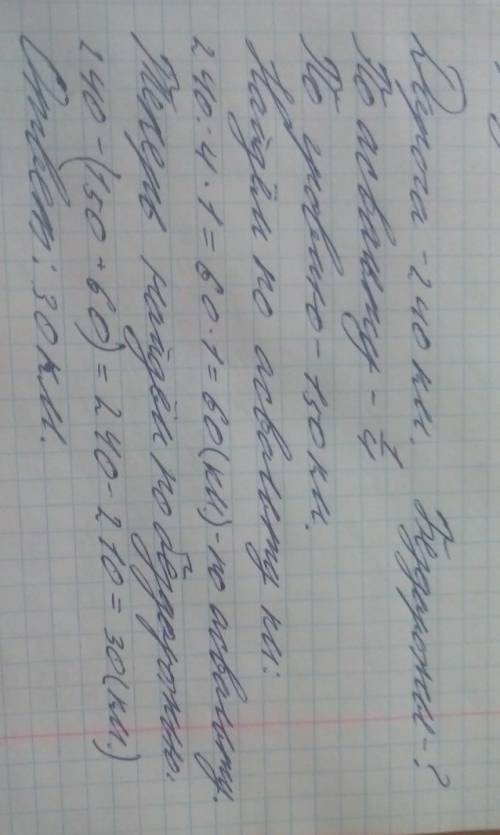 Дорога - 240 км. Бездорожки - ?
По асвальту - 1/4
По гравию - 150 км.
Найдём по асвальту км:
240 · 4 · 1 = 60 · 1 = 60 (км) - по асвальту.
Теперь найдём по бездорожью.
240 - (150 + 60) = 240 - 210 = 30 (км.)
Ответ: 30 км.